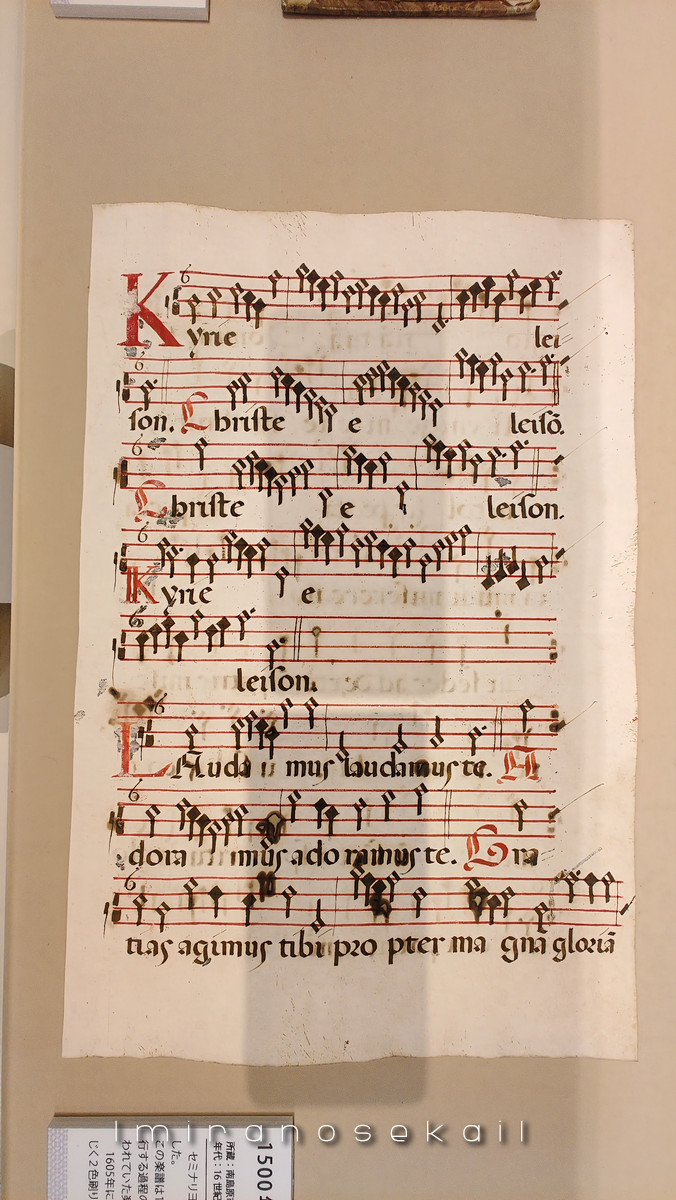 Kyrie lei
son. Christe e leisõ.
Christe e leison.
Kyrie e
leison.
Lauda mus laudamus te. A
dora mus adoramus te. Gra
tias agimus tibi pro pter ma gnã gloriã
1500
所蔵：南島原
年代：16世紀
セミナリヨ
した。
この楽譜は1
行する過程の
われていた
1605年に
じく2色刷り
Imiranosekail